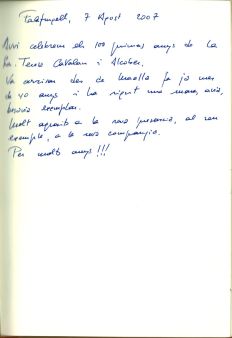 Palafrugell, 7 Agost 2007
Avui celebrem els 100 primers anys de la
Sra Teresa Catalan i Alcober.
Va arribar des de Maella fa ja més
de 40 anys i ha sigut una mare, avia,
besavia exemplar.
Molt agraïts a la seva presencia, al seu
exemple, a la seva companyia.
Per molts anys!!!